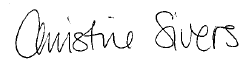 Christine Sivers